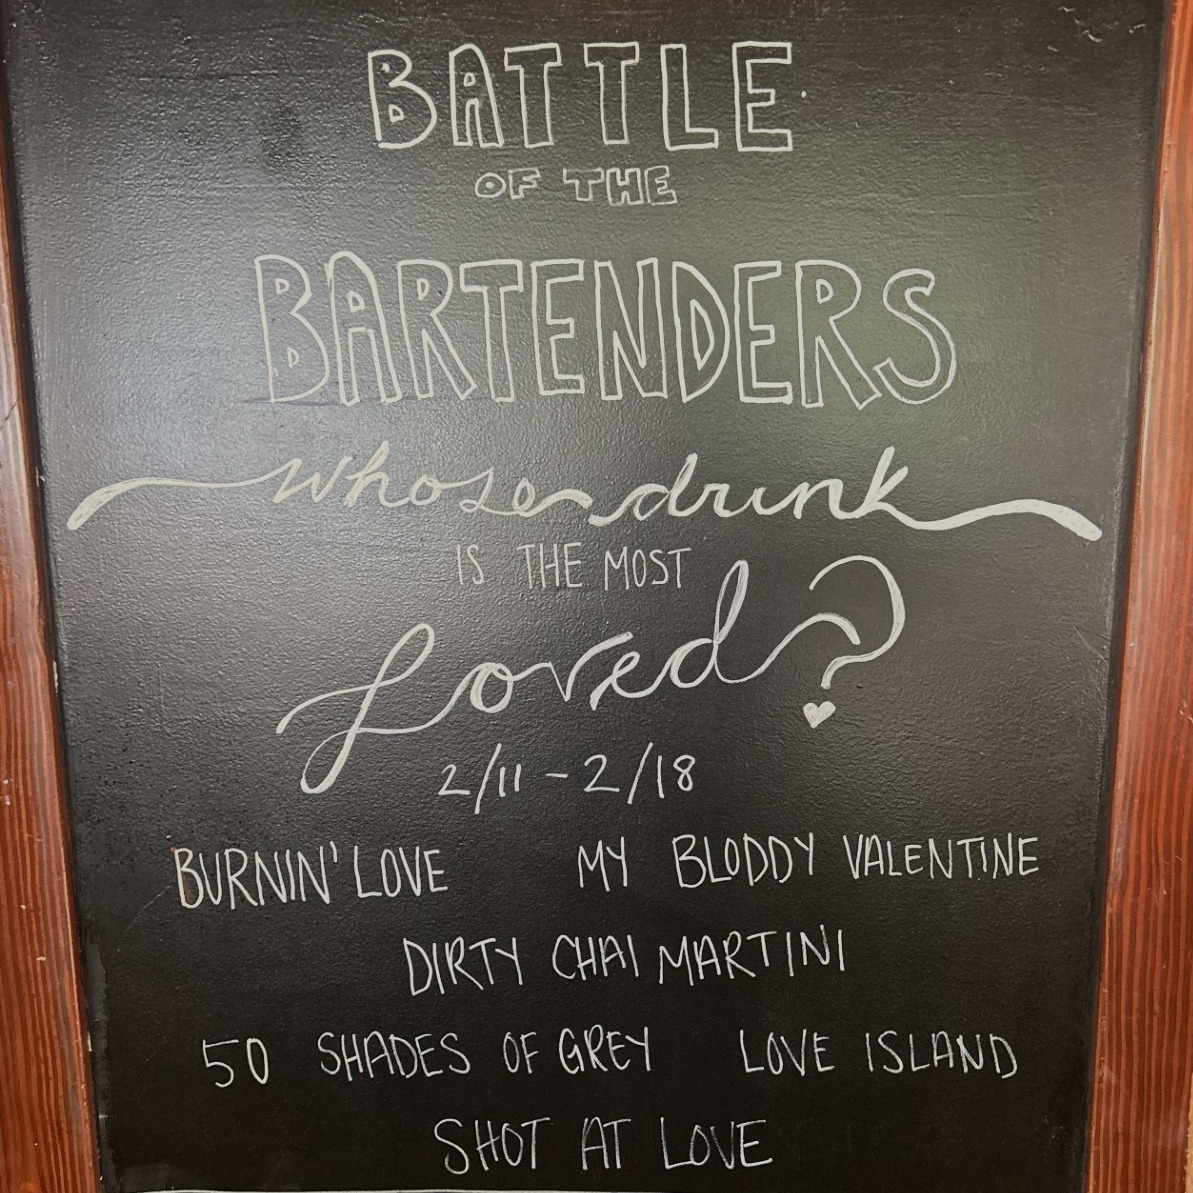 BATTLE
OF THE
BARTENDERS
whose drink
IS THE MOST
Loved?
2/11 - 2/18
BURNIN' LOVE MY BLODDY VALENTINE
DIRTY CHAI MARTINI
50 SHADES OF GREY LOVE ISLAND
SHOT AT LOVE